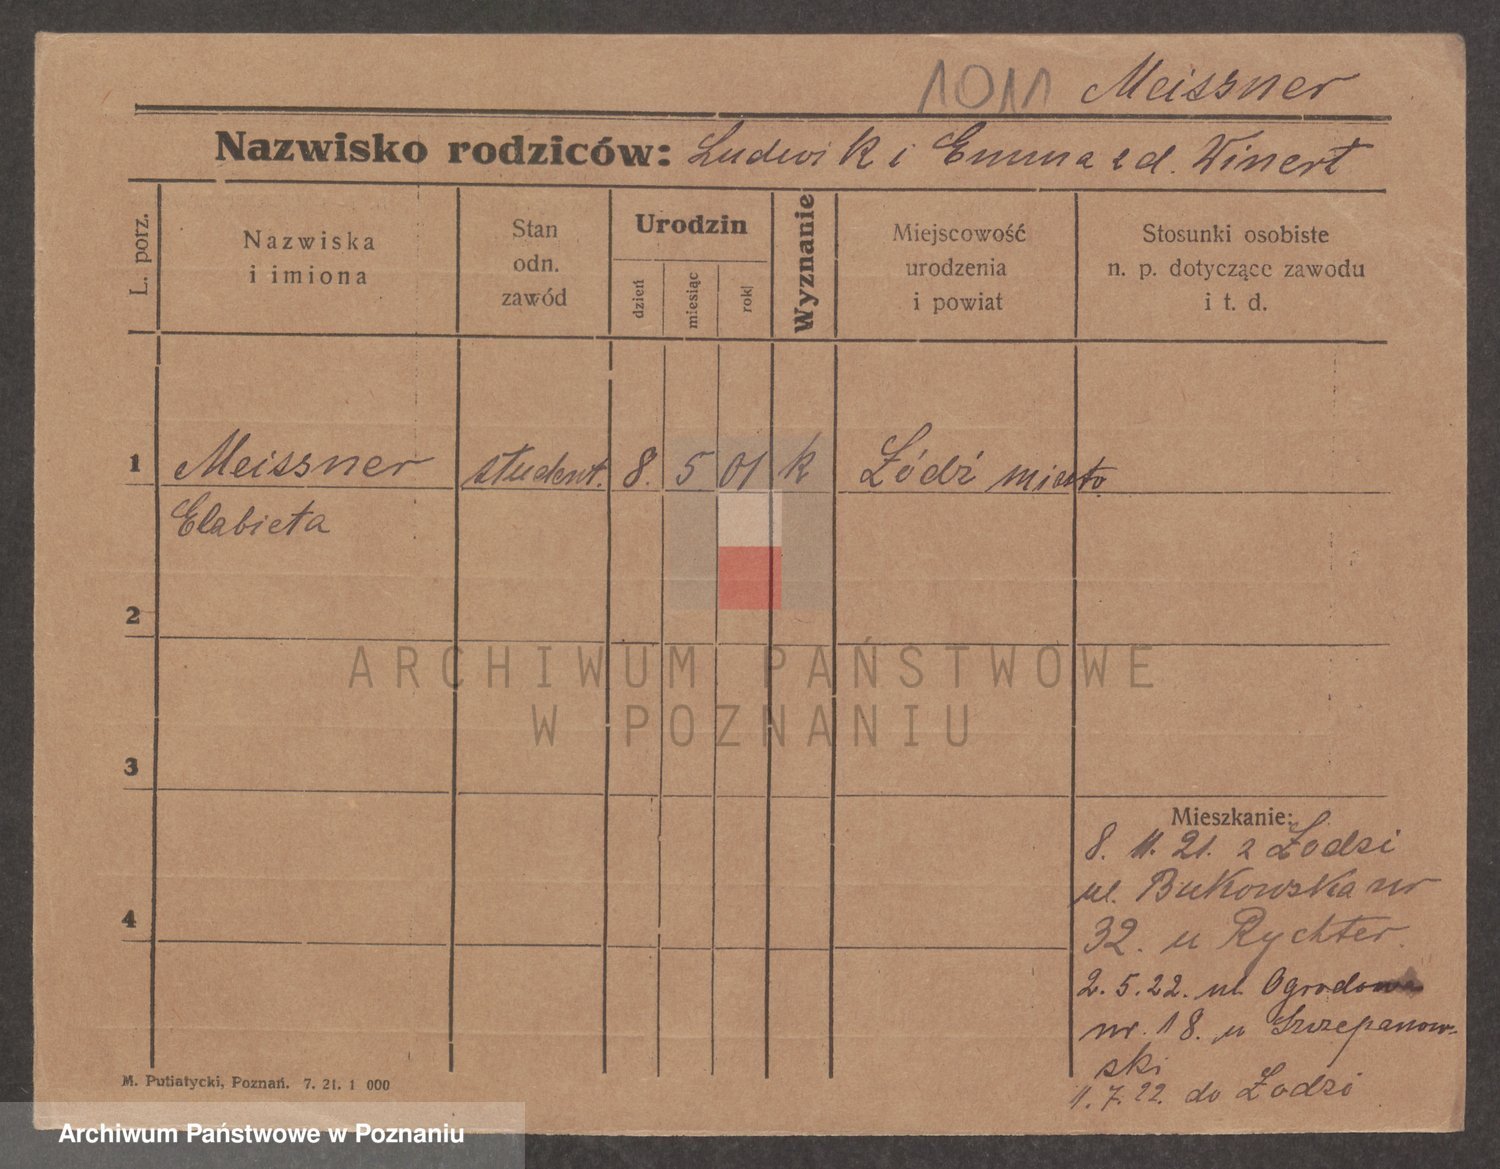 1011 Meissner
Nazwisko rodziców: Ludwik i Emma zd. Winert
L. porz.
Nazwiska
i imiona
Stan
odn.
zawód
Urodzin
dzień
miesiąc
rok
Wyznanie
Miejscowość
urodzenia
i powiat
Stosunki osobiste
n. p. dotyczące zawodu
i t. d.
1 Meissner student. 8. 5 01 k Łódź miasto
Elabieta
2
ARCHIWUM PAŃSTWOWE
W POZNANIU
3
Mieszkanie:
8. 11. 21. z Łodzi
ul. Bukowska nr
4
32. u Rychter.
2. 5. 22. ul. Ogrodowa
nr. 18. u Szczepanow-
ski
11. 7. 22. do Łodzi
M. Putiatycki, Poznań. 7. 21. 1 000
Archiwum Państwowe w Poznaniu